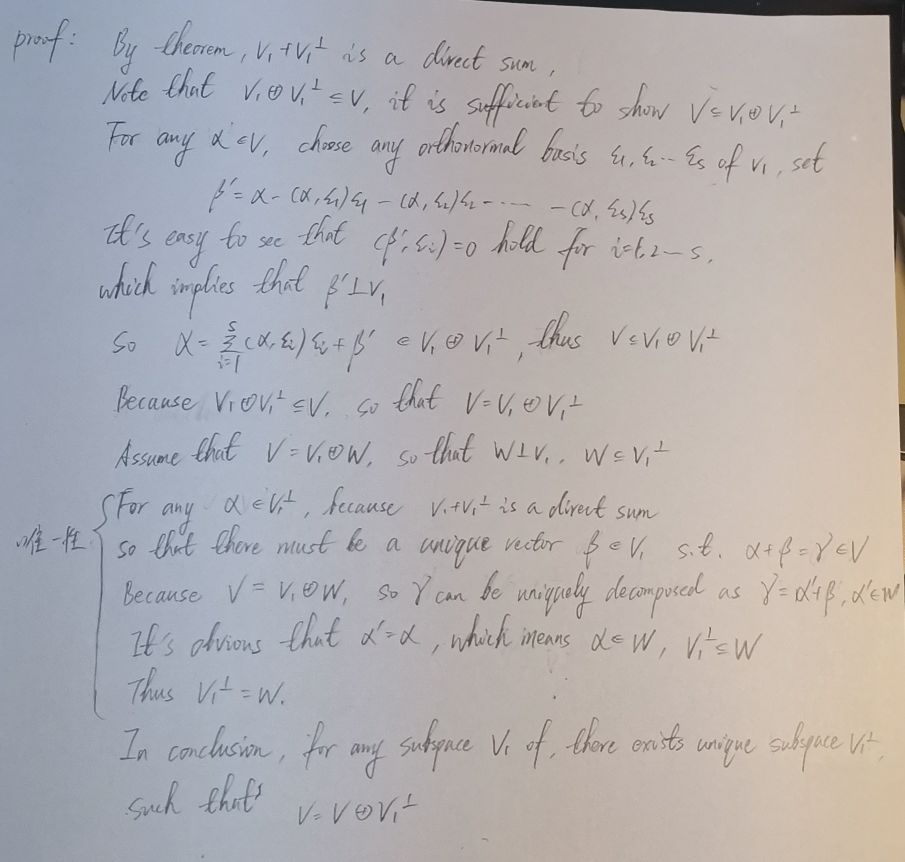 proof: By theorem, V₁+V₁^⊥ is a direct sum,
Note that V₁⊕V₁^⊥ ⊆ V, it is sufficient to show V ⊆ V₁⊕V₁^⊥
For any α∈V, choose any orthonormal basis ε₁, ε₂ -- εs of V₁, set
β' = α - (α, ε₁)ε₁ - (α, ε₂)ε₂ - ······ - (α, εs)εs
It's easy to see that (β', εi)=0 hold for i=1,2--s,
which implies that β'⊥V₁
So α = Σ_{i=1}^{s} (α, εi)εi + β' ∈ V₁ ⊕ V₁^⊥, thus V ⊆ V₁ ⊕ V₁^⊥
Because V₁⊕V₁^⊥ ⊆ V, so that V = V₁ ⊕ V₁^⊥
Assume that V = V₁⊕W, so that W⊥V₁, W ⊆ V₁^⊥
For any α ∈ V₁^⊥, because V₁+V₁^⊥ is a direct sum
唯一性 so that there must be a unique vector β ∈ V₁ s.t. α+β=γ∈V
Because V = V₁⊕W, so γ can be uniquely decomposed as γ=α'+β, α'∈W
It's obvious that α'=α, which means α∈W, V₁^⊥ ⊆ W
Thus V₁^⊥ = W.
In conclusion, for any subspace V₁ of, there exists unique subspace V₁^⊥,
such that V = V ⊕ V₁^⊥